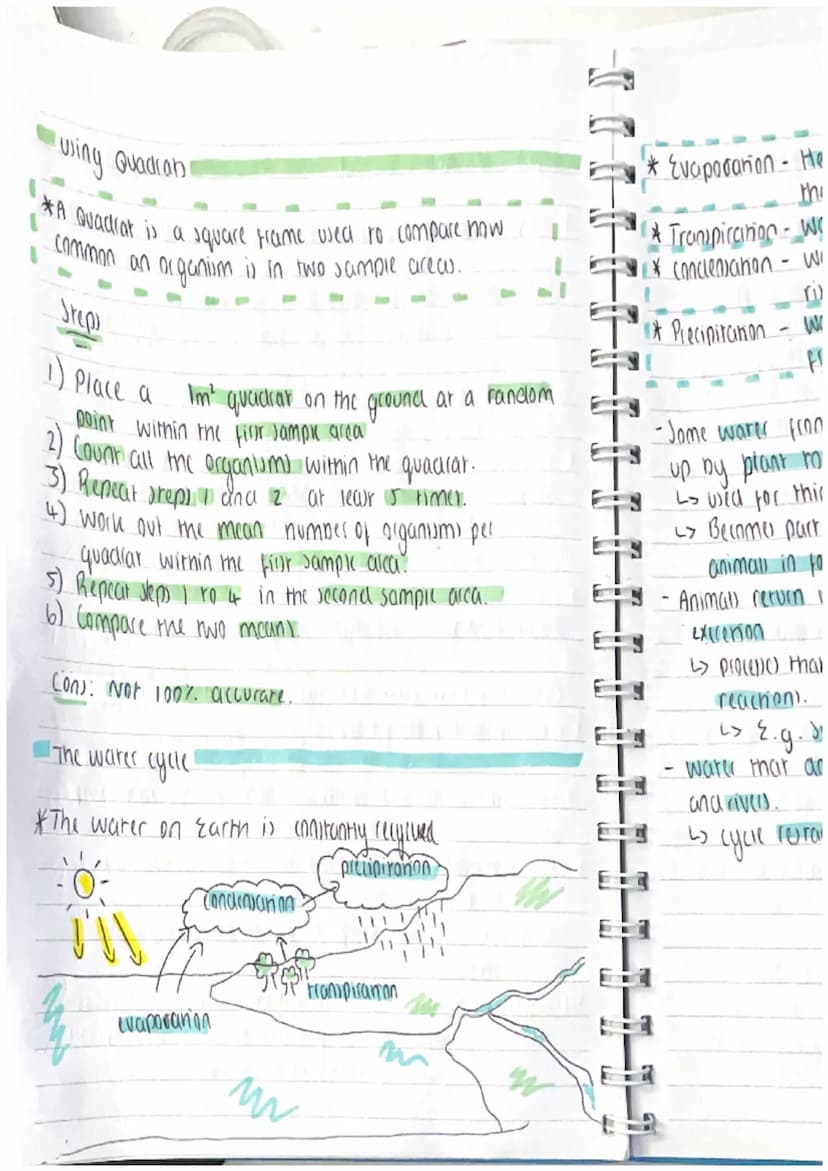 Using Quadrats
*A Quadrat is a square frame used to compare how
common an organism is in two sample areas.
Steps
1) Place a 1m² quadrat on the ground at a random
point within the first sample area
2) Count all the organisms within the quadrat.
3) Repeat steps 1 and 2 at least 5 times.
4) Work out the mean number of organisms per
quadrat within the first sample area.
5) Repeat steps 1 to 4 in the second sample area.
6) Compare the two means.
Cons: Not 100% accurate.
The water cycle
*The water on Earth is constantly recycled
precipitation
condensation
transpiration
evaporation
* Evaporation - He
th
* Transpiration - Wa
* Condensation - W
ri
* Precipitation - Wa
- Some water from
up by plant ro
↳ used for this
↳ Becomes part
animals in fo
- Animals return
excretion
↳ process that
reactions.
↳ E.g.
- water that
and rivers.
↳ cycle